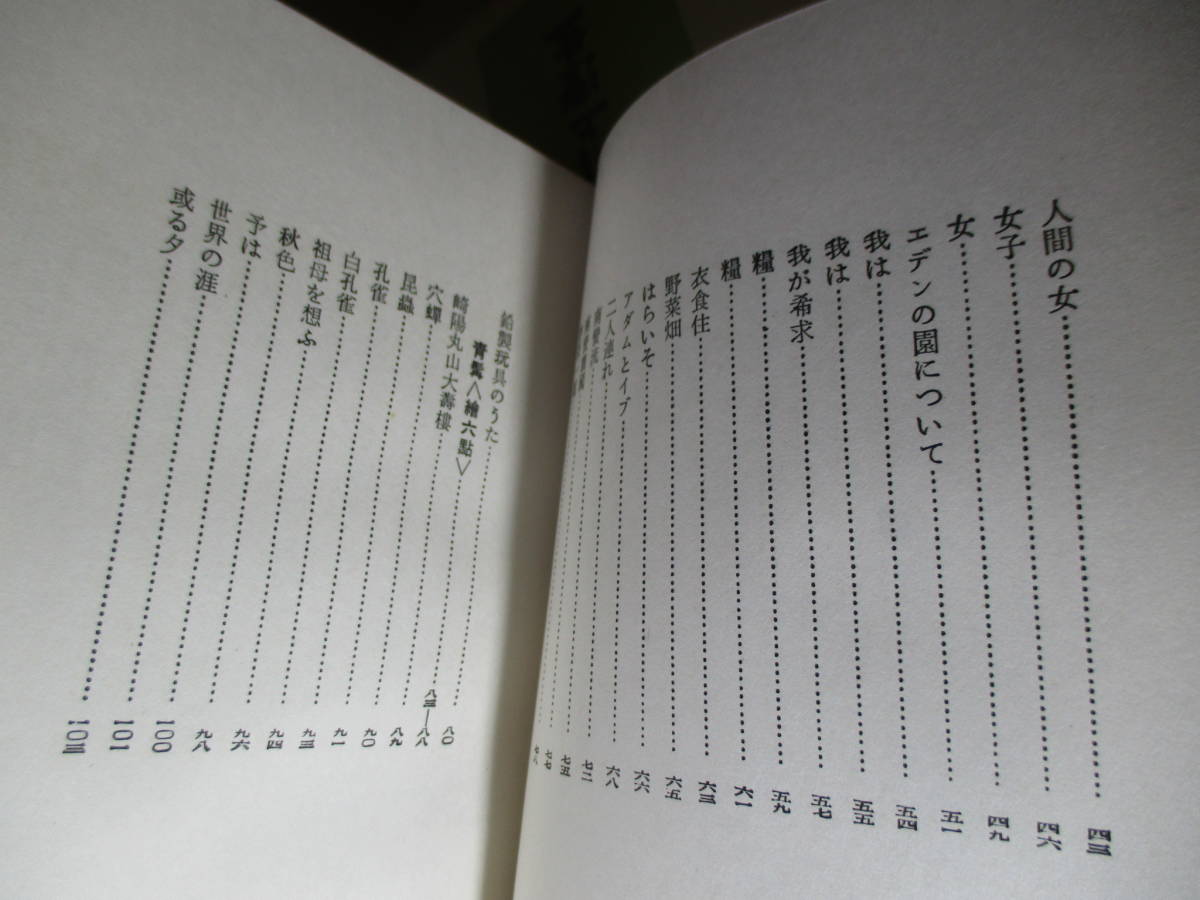 人間の女……四三
女子……四六
女……四九
エデンの園について……五一
我は……五四
我は……五五
我が希求……五七
糧……五九
糧……六一
衣食住……六三
野菜畑……六五
はらいそ……六六
アダムとイブ……六八
二人連れ……七二
……七五
……七七
……七八
鉛製玩具のうた……八〇
青髯〈繪六點〉……八三—八八
崎陽丸山大壽樓……八九
穴蟬……九〇
昆蟲……九一
孔雀……九三
白孔雀……九四
祖母を想ふ……九六
秋色……九八
予は……一〇〇
世界の涯……一〇一
或る夕……一〇三